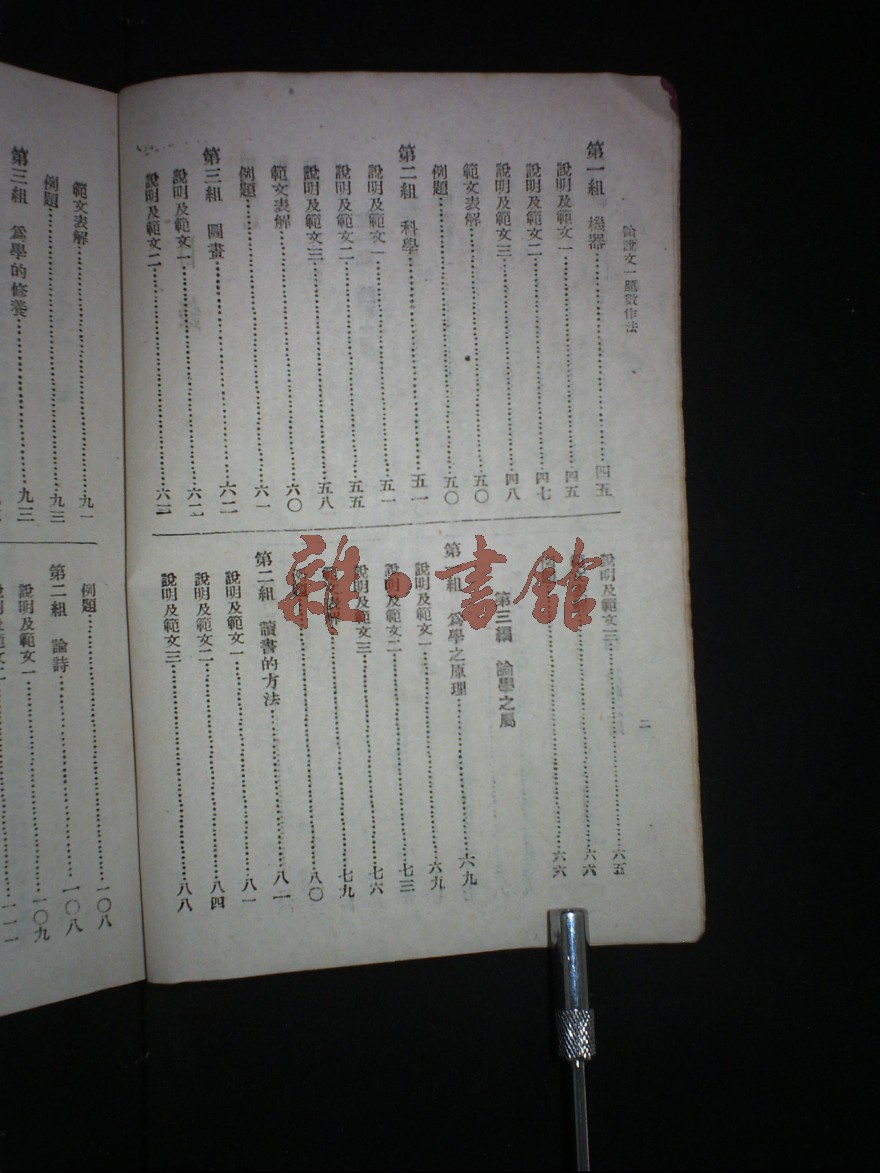 論說文一題數作法
二
第一組　機器……四五
說明及範文一……四五
說明及範文二……四七
說明及範文三……四八
範文表解……五〇
例題……五〇
第二組　科學……五一
說明及範文一……五一
說明及範文二……五五
說明及範文三……五八
範文表解……六〇
例題……六一
第三組　圖畫……六二
說明及範文一……六二
說明及範文二……六三
說明及範文三……六五
範文表解……六六
例題……六六
第三編　論學之屬
第一組　爲學之原理……六九
說明及範文一……六九
說明及範文二……七三
說明及範文三……七六
範文表解……七九
例題……八〇
第二組　讀書的方法……八一
說明及範文一……八一
說明及範文二……八四
說明及範文三……八八
範文表解……九一
例題……九三
第三組　爲學的修養……九三
例題……一〇八
第二組　論詩……一〇八
說明及範文一……一〇九
說明及範文二……一一一
雜·書館